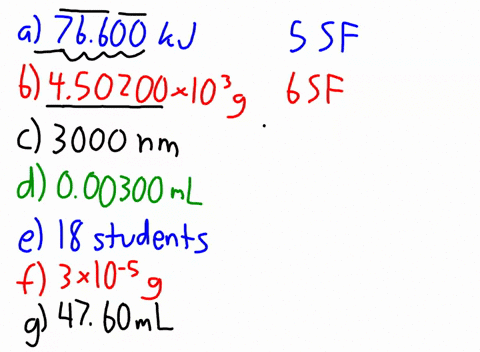 a) 76.600 kJ 5 SF
b) 4.50200 × 10³ g 6 SF
c) 3000 nm
d) 0.00300 mL
e) 18 students
f) 3 × 10⁻⁵ g
g) 47.60 mL